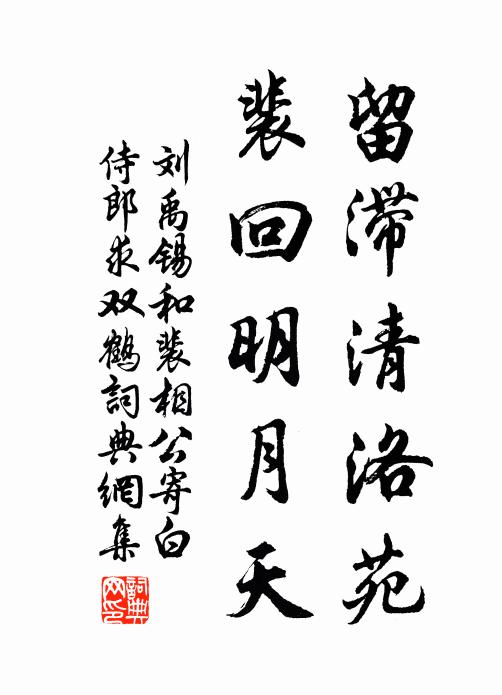 留滞清洛苑
裴回明月天
刘禹锡和裴相公寄白
侍郎求双鹤詞典網集
詞典
网印